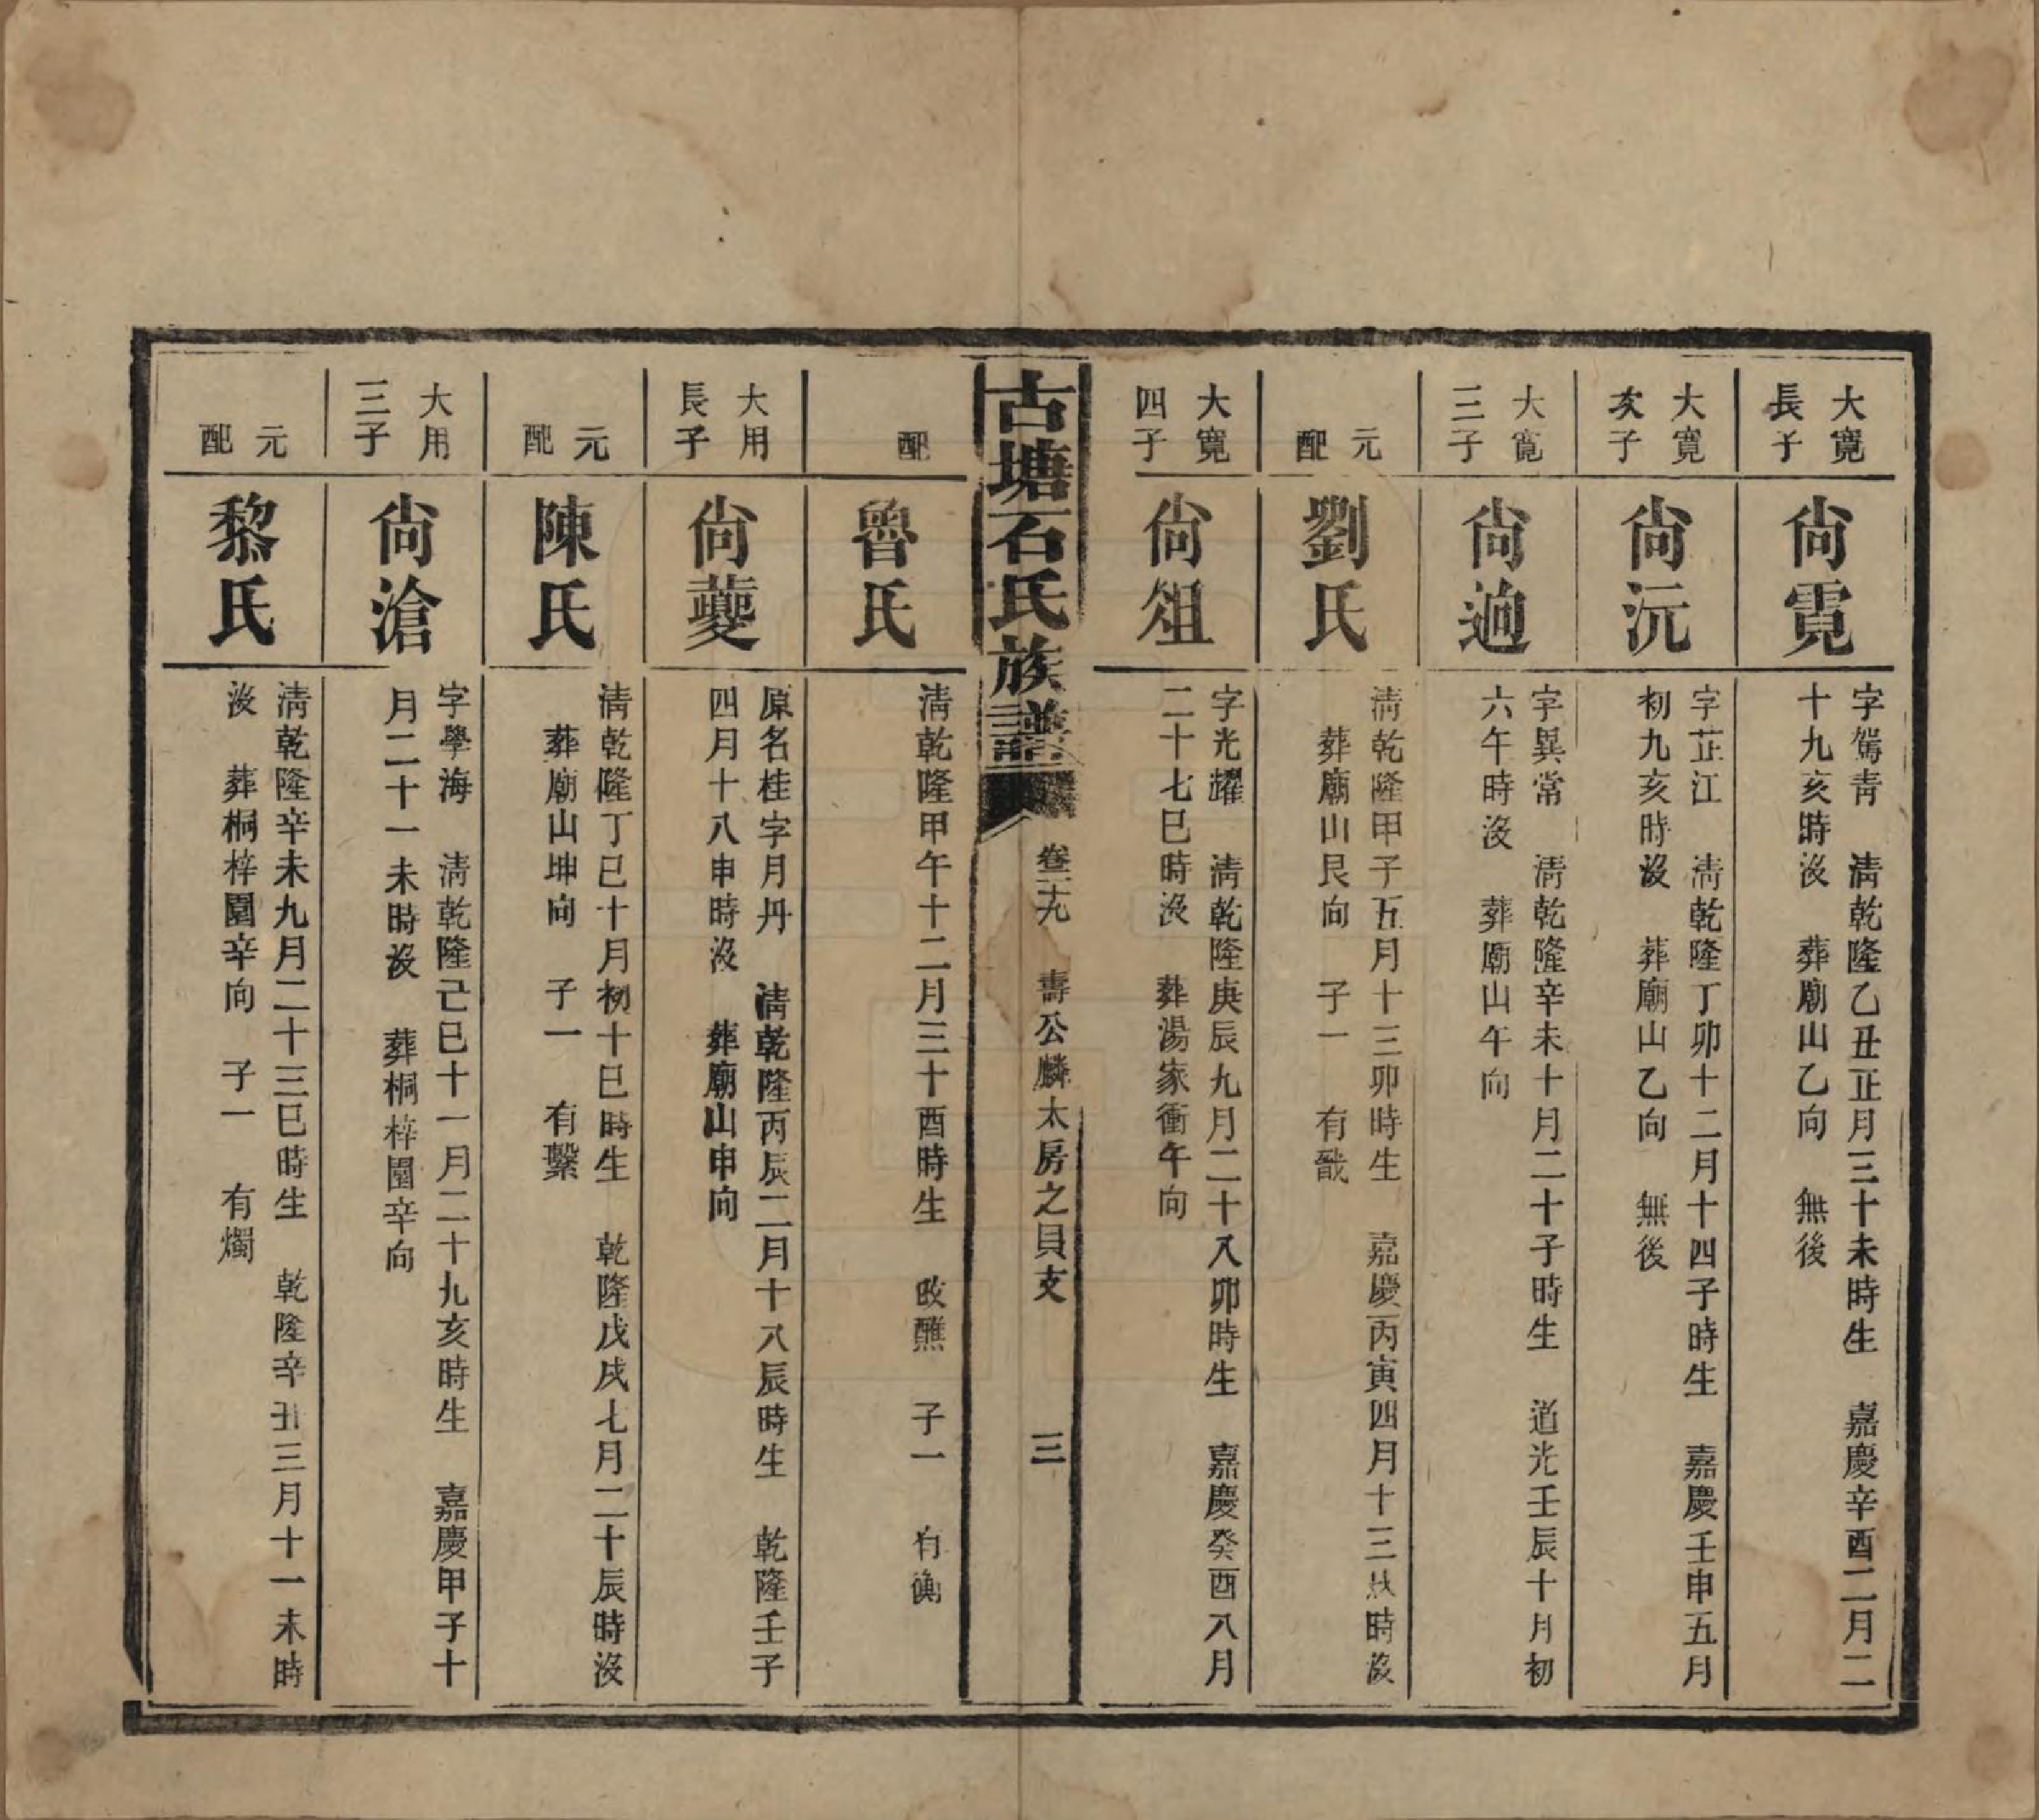 大寬
長子
尙霓
字駕青　淸乾隆乙丑正月三十未時生　嘉慶辛酉二月二
十九亥時沒　葬廟山乙向　無後
大寬
次子
尙沅
字芷江　淸乾隆丁卯十二月十四子時生　嘉慶壬申五月
初九亥時沒　葬廟山乙向　無後
大寬
三子
尙逈
字異常　淸乾隆辛未十月二十子時生　道光壬辰十月初
六午時沒　葬廟山午向
元
配
劉氏
淸乾隆甲子五月十三卯時生　嘉慶丙寅四月十三　時沒
葬廟山艮向　子一　有戩
大寬
四子
尙俎
字光耀　淸乾隆庚辰九月二十八卯時生　嘉慶癸酉八月
二十七巳時沒　葬湯家衝午向
古塘石氏族譜
卷三十九　壽公麟太房之貝支　三
配
魯氏
淸乾隆甲午十二月三十酉時生　改醮　子一　有
大用
長子
尙夔
原名桂字月丹　淸乾隆丙辰二月十八辰時生　乾隆壬子
四月十八申時沒　葬廟山申向
元
配
陳氏
淸乾隆丁巳十月初十巳時生　乾隆戊戌七月二十辰時沒
葬廟山坤向　子一　有繫
大用
三子
尙滄
字學海　淸乾隆己巳十一月二十九亥時生　嘉慶甲子十
月二十一未時沒　葬桐梓園辛向
元
配
黎氏
淸乾隆辛未九月二十三巳時生　乾隆辛丑三月十一未時
沒　葬桐梓園辛向　子一　有燭